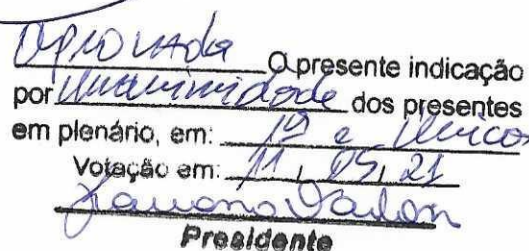 Aprovada O presente indicação
por Unanimidade dos presentes
em plenário, em: 1ª e Única
Votação em: 11, 05, 21
Presidente